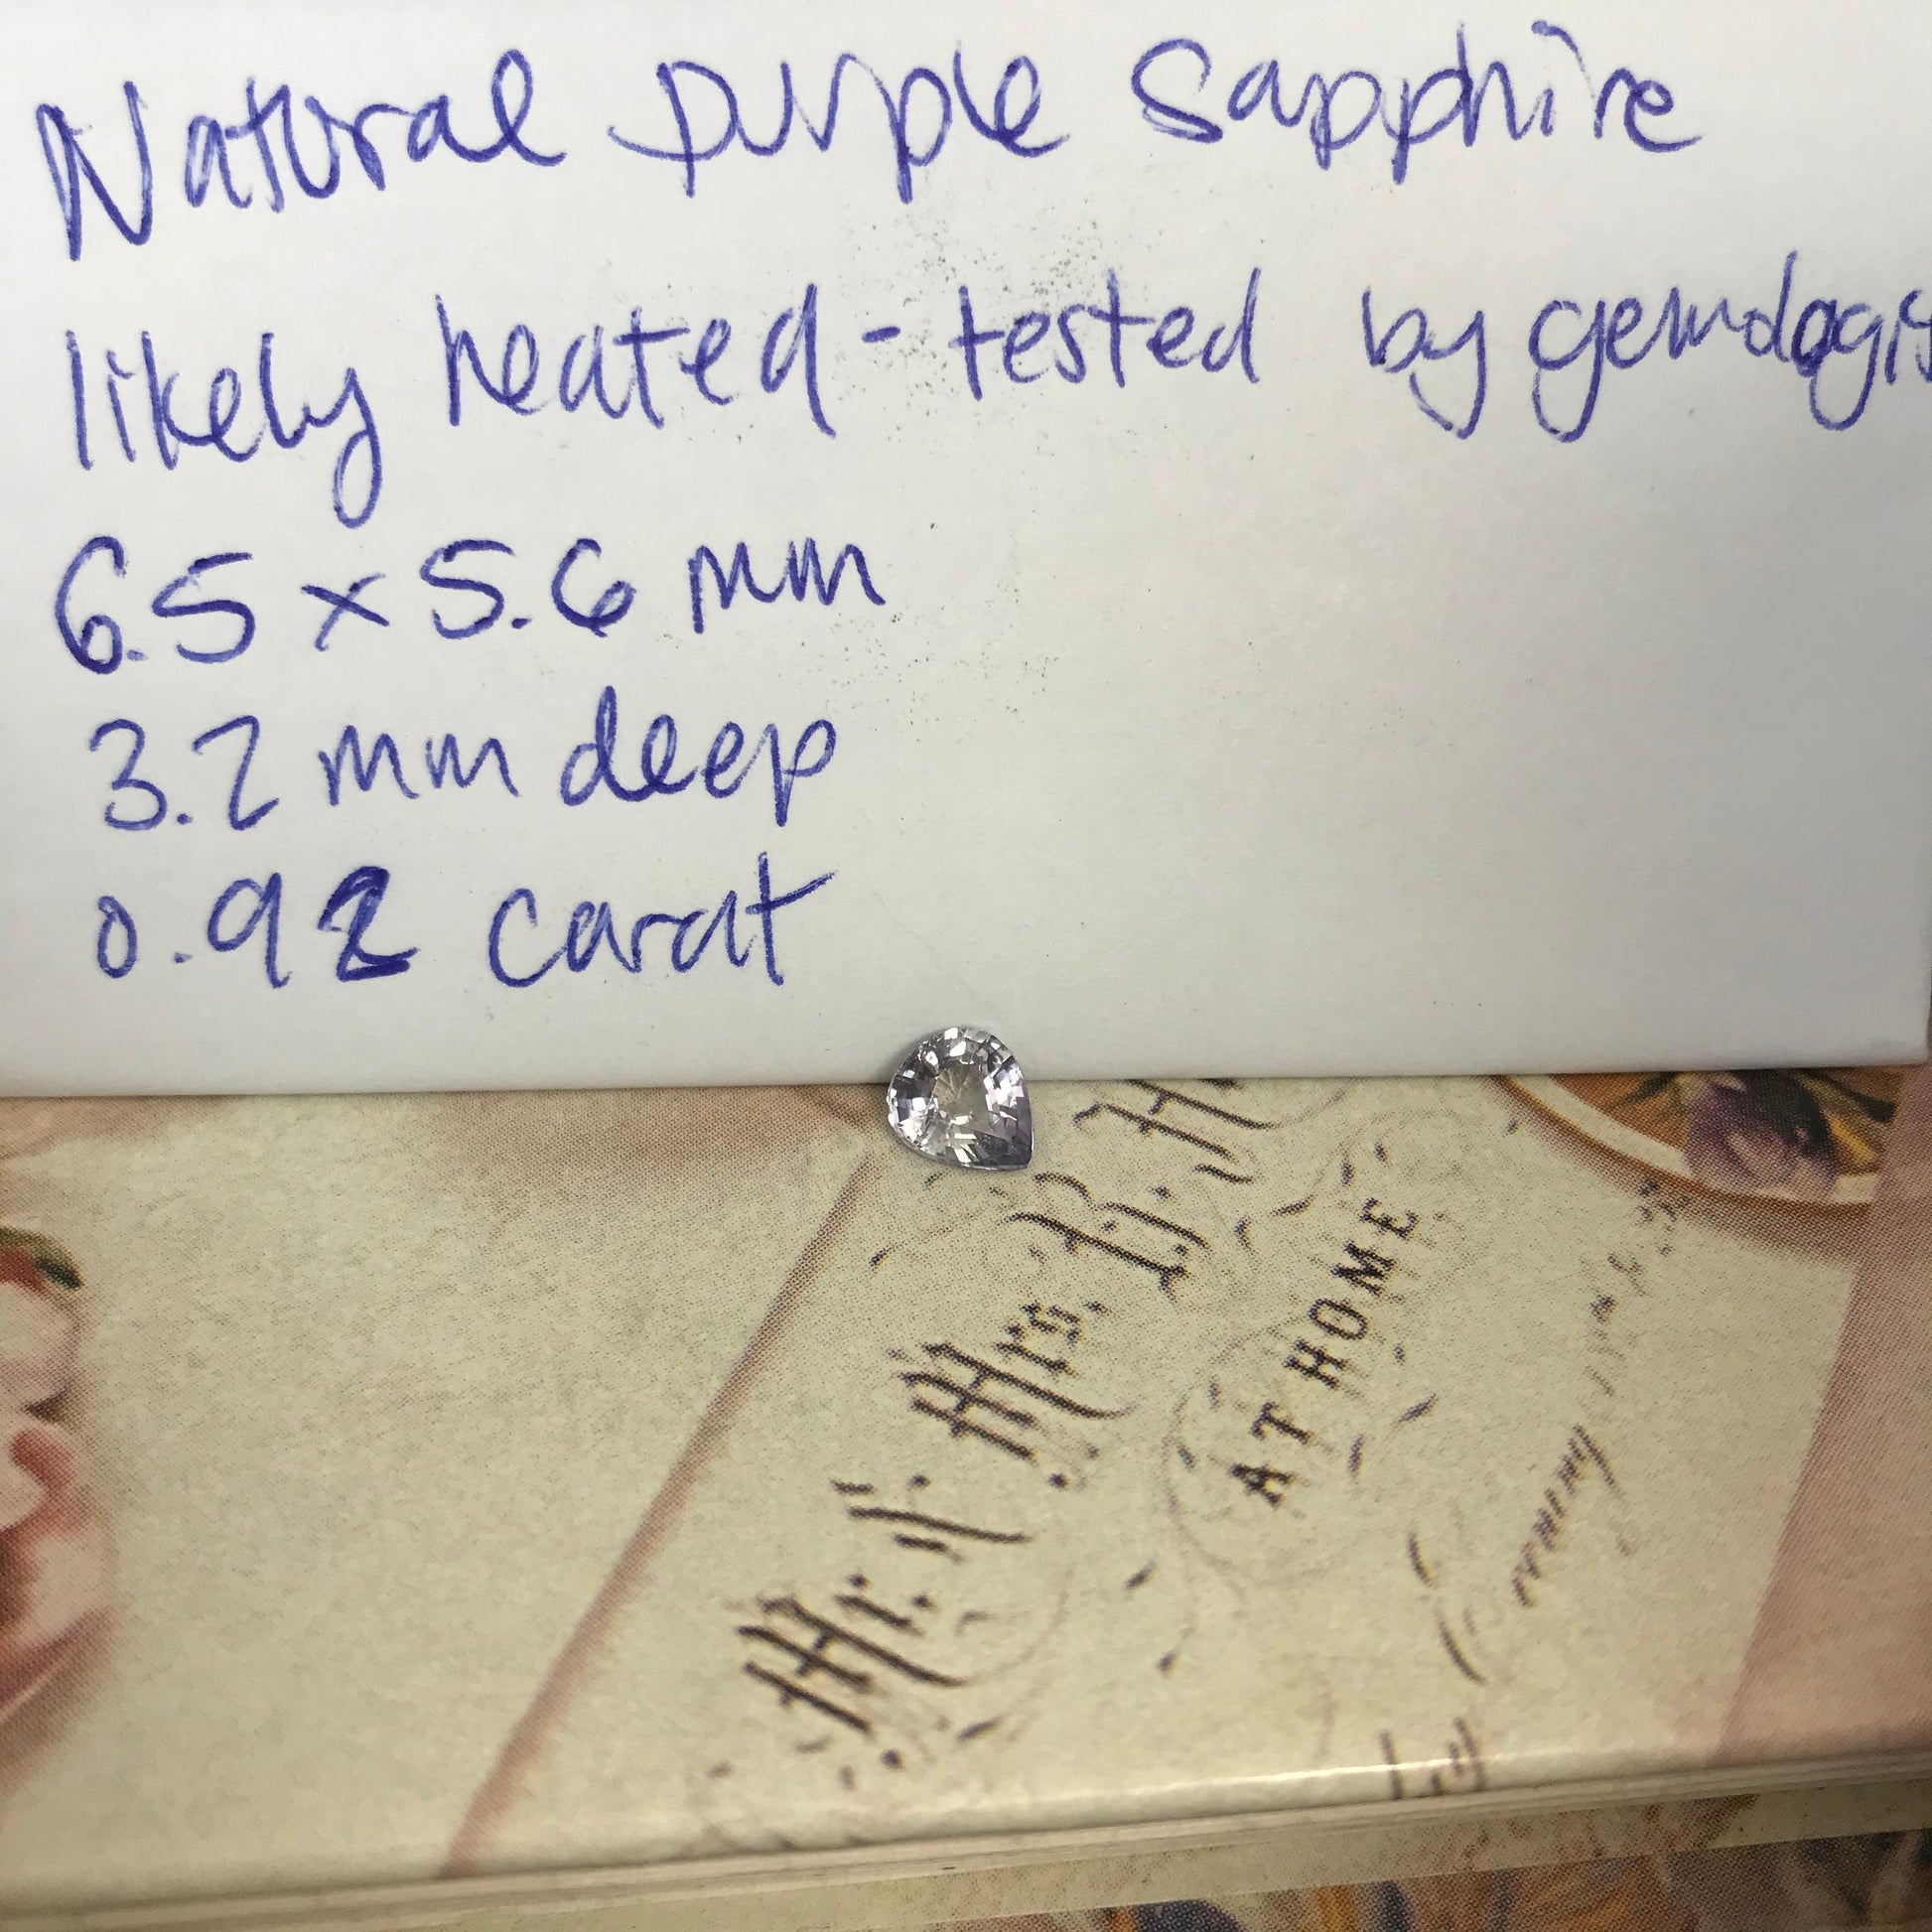 Natural purple Sapphire
likely heated - tested by gemologis
6.5 x 5.6 mm
3.2 mm deep
0.92 carat
Mr. & Mrs. B.
AT HOME